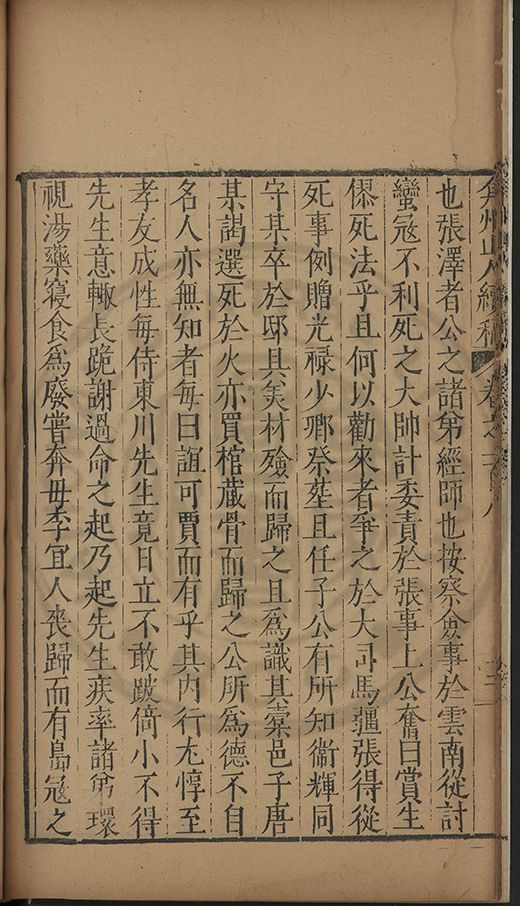 弇州山人續稿 卷之一百八
也張澤者公之諸弟經師也按察僉事於雲南從討
蠻冦不利死之大帥計委責於張事上公奮曰賞生
僇死法乎且何以勸來者爭之於大司馬彊張得從
死事例贈光祿少卿祭塟且任子公有所知衞輝同
守某卒於邸具美材殮而歸之且爲識其槖邑子唐
某謁選死於火亦買棺藏骨而歸之公所爲德不自
名人亦無知者每曰誼可賈而有乎其内行尤惇至
孝友成性每侍東川先生竟日立不敢跛倚小不得
先生意輙長跪謝過命之起乃起先生疾率諸弟環
視湯藥寢食爲廢嘗奔毋李宜人喪歸而有島冦之